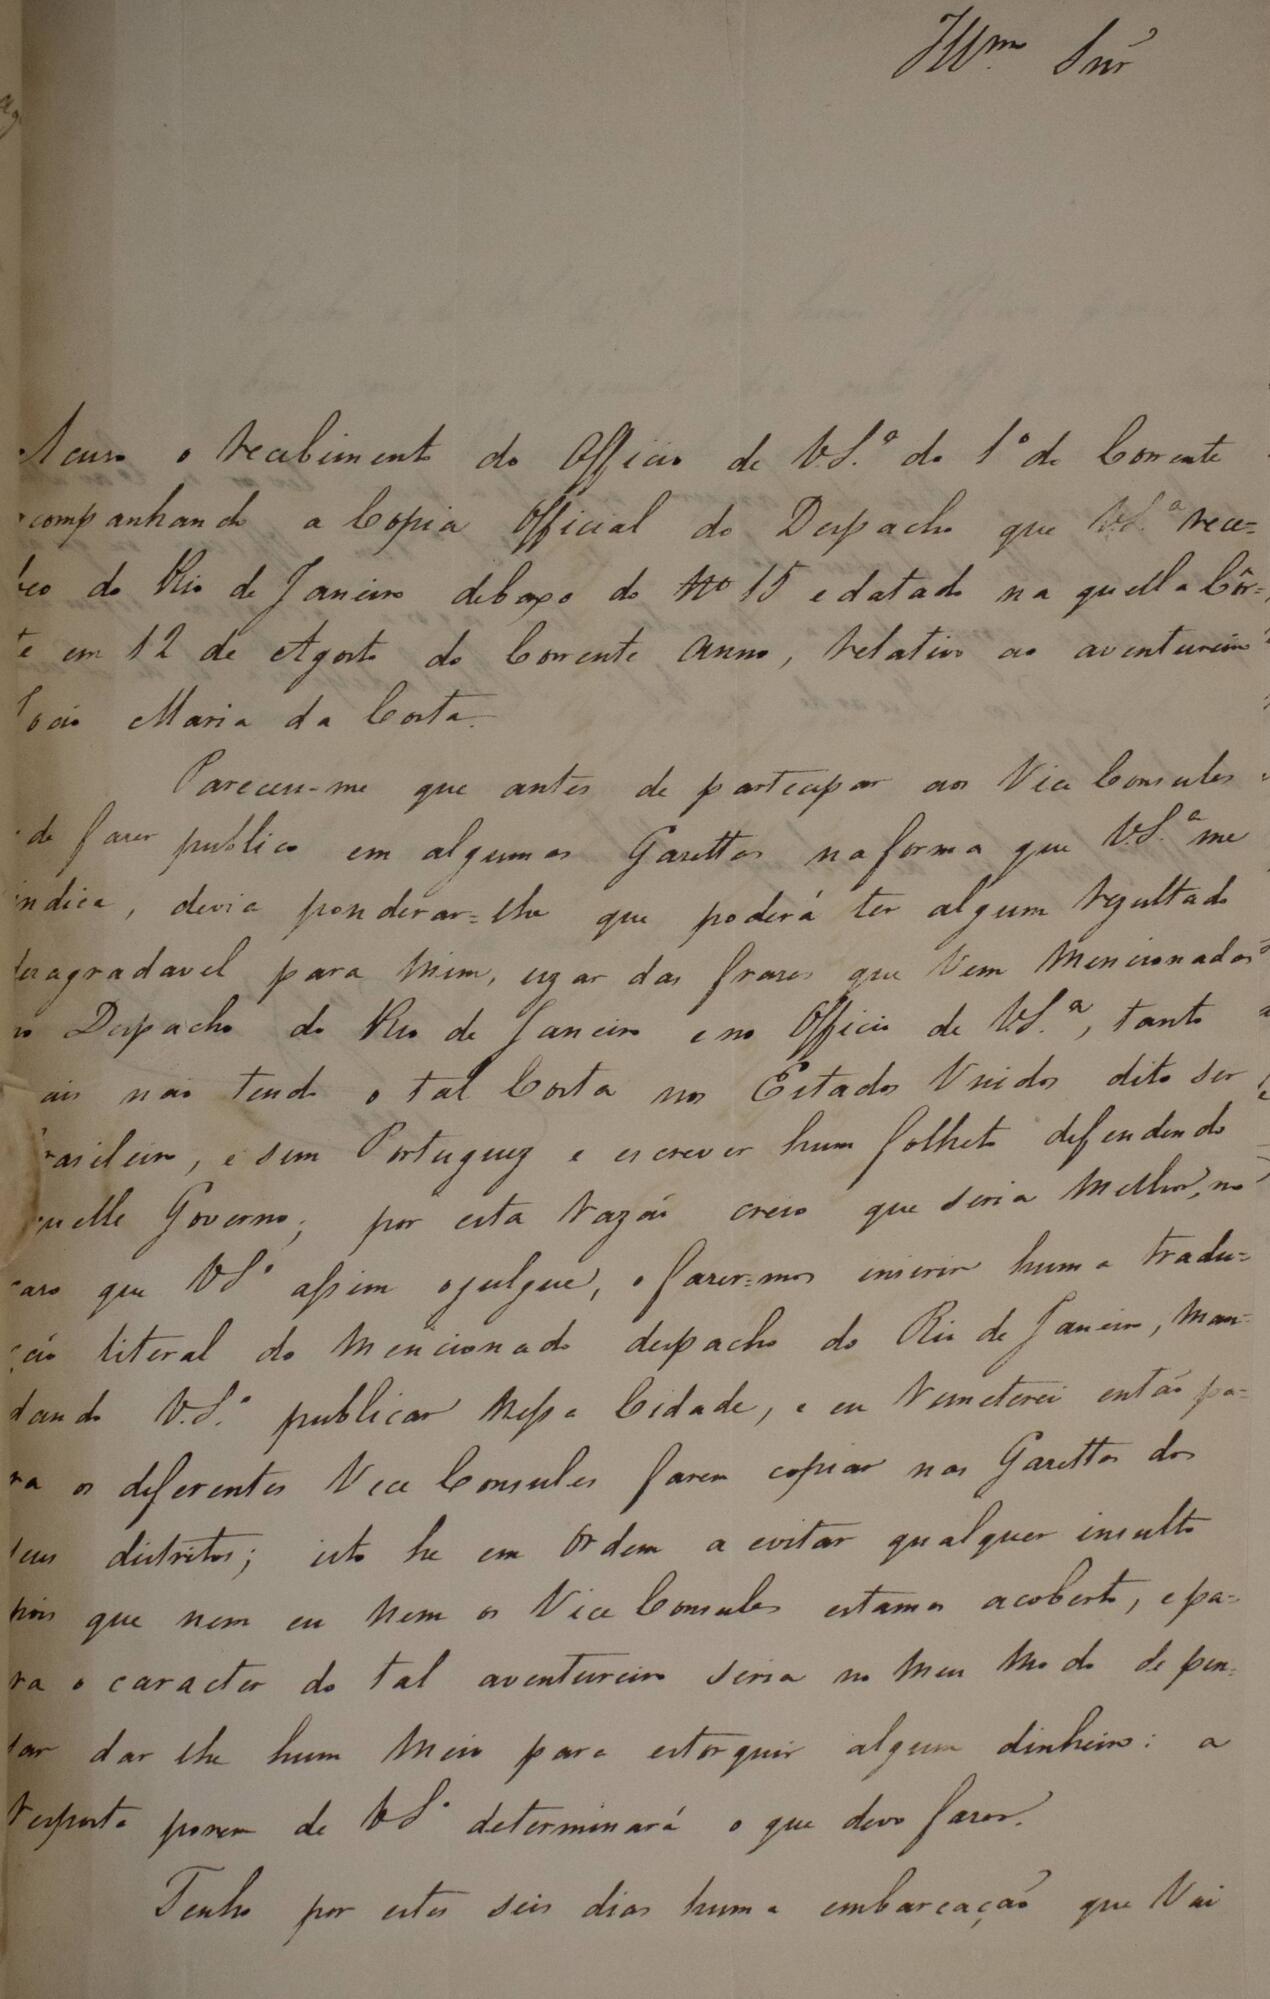 Illmo. Snr
Acuso o recebimento do Officio de V.S.ª do 1º do Corrente
companhando a Copia Official do Despacho que V.S.ª rece=
beo do Rio de Janeiro debaxo do Nº 15 e datado na quella Côr=
te em 12 de Agosto do Corrente Anno, relativo ao aventureiro
João Maria da Costa.
Pareceu-me que antes de partecipar aos Vice Consules
de faser publico em algumas Gazettas na forma que V.S.ª me
indica, devia ponderar=lhe que poderá ter algum resultado
desagradavel para mim, uzar das frases que vem mencionados
no Despacho do Rio de Janeiro e no Officio de V.S.ª, tanto
ais não tendo o tal Costa nos Estados Unidos dito ser
Brasileiro, e sim Portuguez e escrever hum folheto defendendo
quelle Governo; por esta razão creio que seria melhor, no
caso que V.S.ª assim o julgue, o faser=mos inserir huma tradu=
ção literal do mencionado despacho do Rio de Janeiro, man=
dando V.S.ª publicar nessa Cidade, e eu remeterei então pa=
ra os diferentes Vice Consules farem copiar nas Gazettas dos
seus distritos; isto he em ordem a evitar qualquer insulto
pois que nem eu nem os Vice Consules estamos acoberto, e pa=
ra o caracter do tal aventureiro seria no meu modo de pen=
sar dar lhe hum meio para estorquir algum dinheiro: a
resposta porem de V.S.ª determinará o que devo faser.
Tenho por estes seis dias huma embarcação que vai